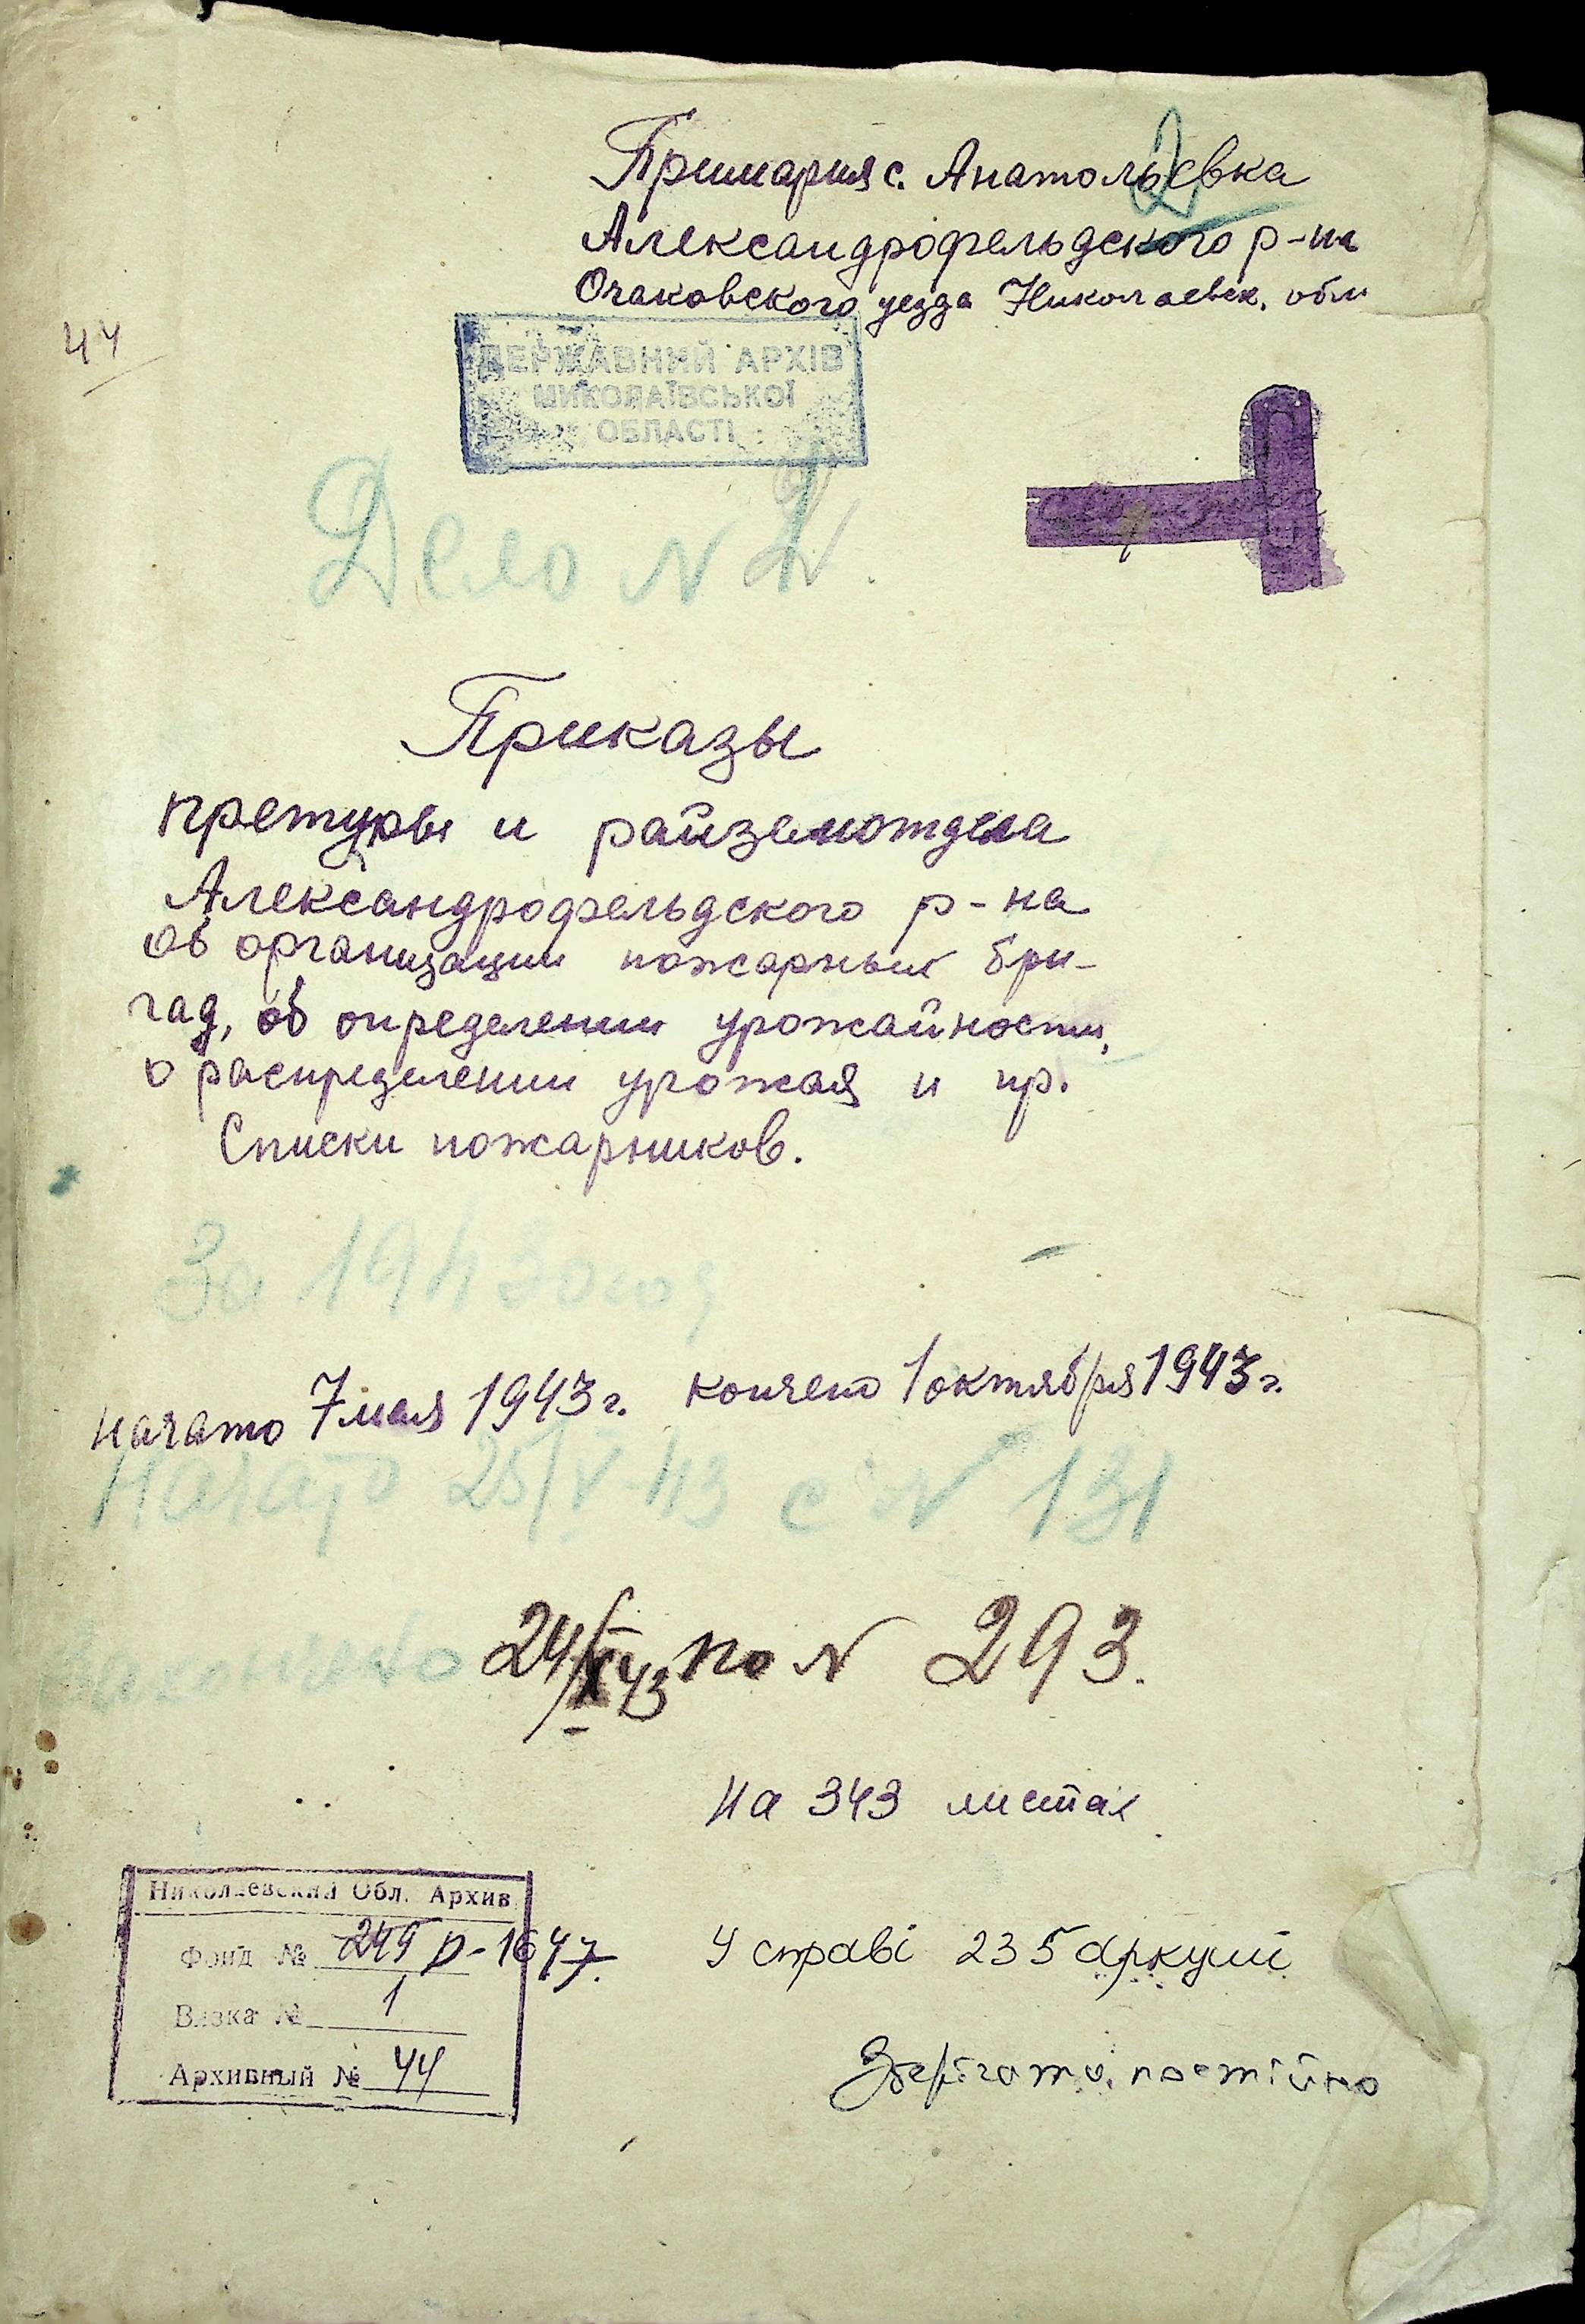 Примария с. Анатольевка
Александрофельдского р-на
Очаковского уезда Николаевск. обл
44
ДЕРЖАВНИЙ АРХІВ
МИКОЛАЇВСЬКОЇ
ОБЛАСТІ
Дело №
Приказы
претуры и райземотдела
Александрофельдского р-на
об организации пожарных бри-
гад, об определении урожайности,
о распределении урожая и пр.
Списки пожарников.
За 1943 год
начато 7 мая 1943 г. кончено 1 октября 1943 г.
Начато 25/V-43 с № 131
24/ 43 по № 293.
на 343 листах
Николаевский Обл. Архив
Фонд № 249 Р-1647.
Вязка № 1
Архивный № 44
У справі 235 аркуші
Зберігати постійно